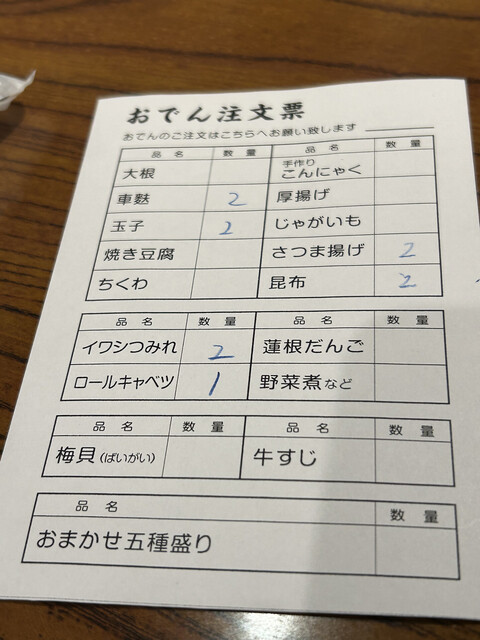 おでん注文票
おでんのご注文はこちらへお願い致します
品名 数量 品名 数量
大根 手作りこんにゃく
車麩 2 厚揚げ
玉子 2 じゃがいも
焼き豆腐 さつま揚げ 2
ちくわ 昆布 2
品名 数量 品名 数量
イワシつみれ 2 蓮根だんご
ロールキャベツ 1 野菜煮など
品名 数量 品名 数量
梅貝(ばいがい) 牛すじ
品名 数量
おまかせ五種盛り